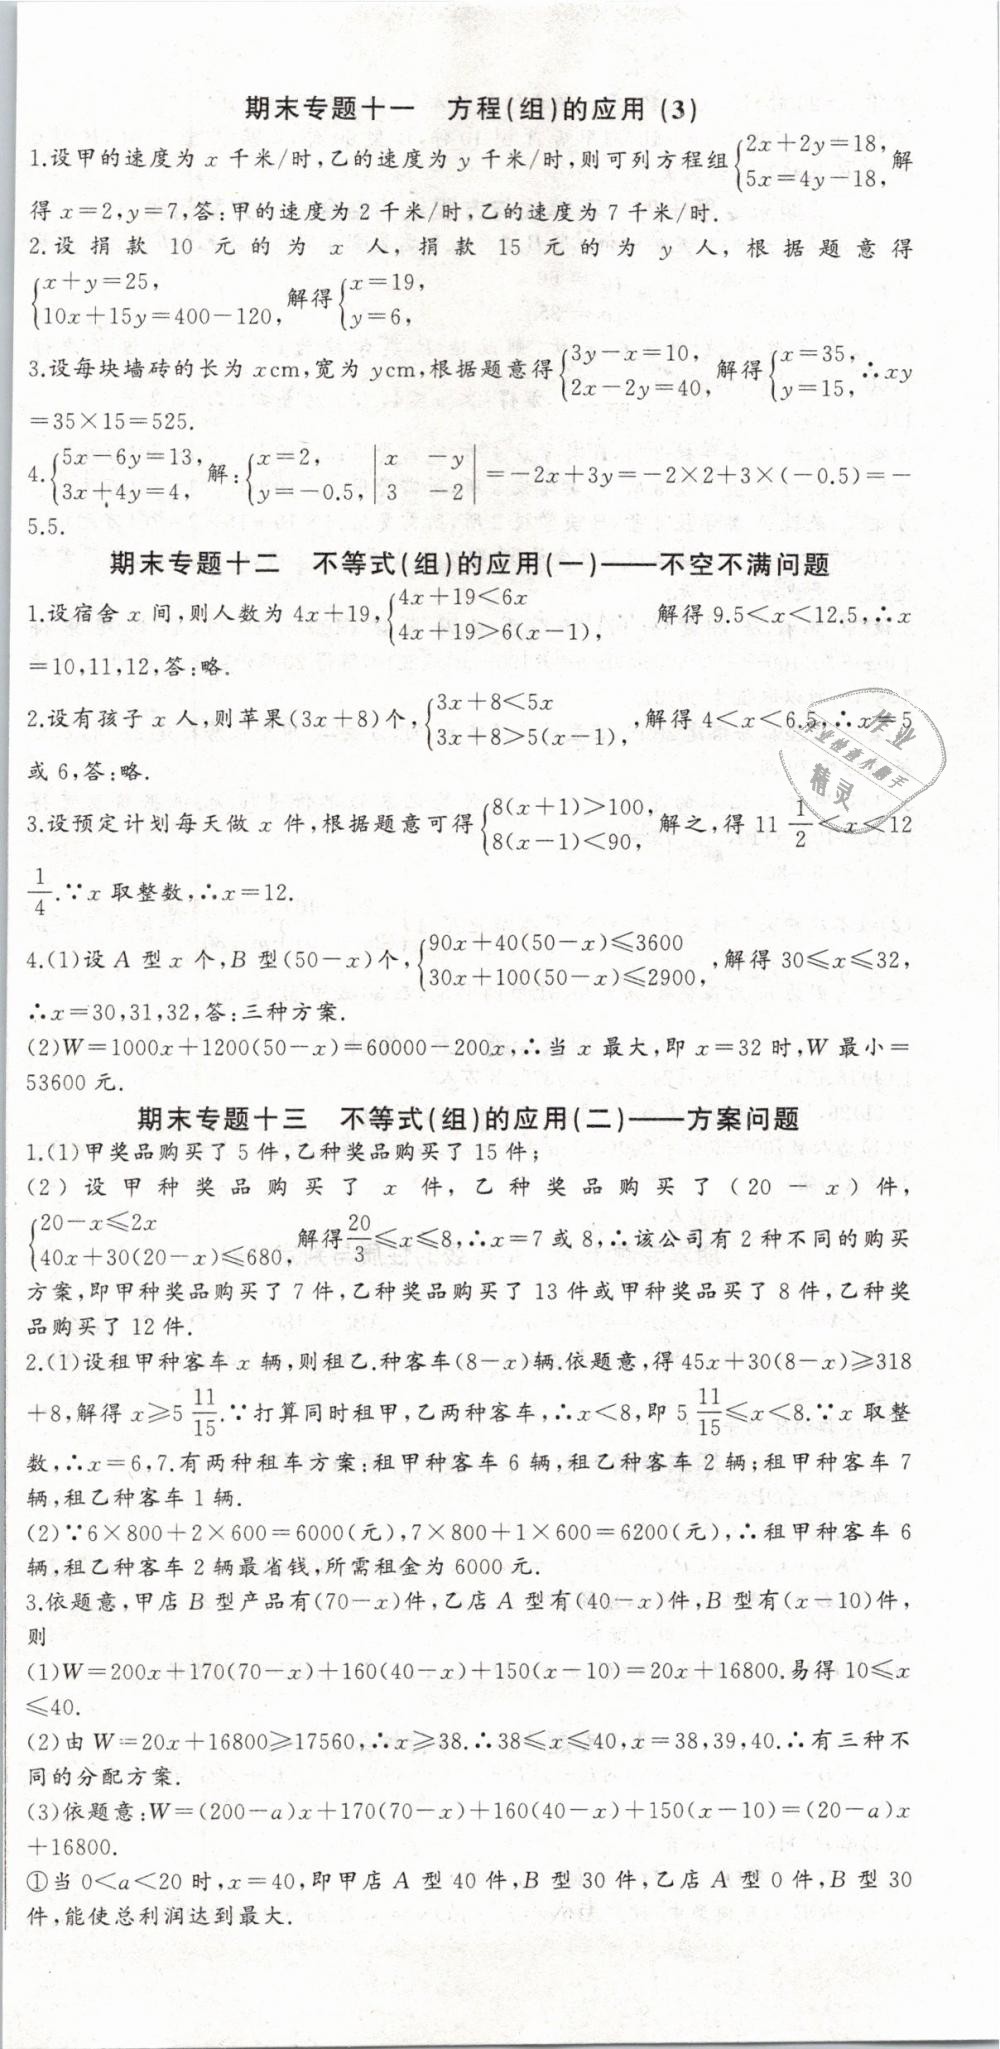 期末专题十一　方程(组)的应用(3)
1.设甲的速度为 x 千米/时,乙的速度为 y 千米/时,则可列方程组{2x+2y=18, 5x=4y-18,解
得 x=2,y=7,答:甲的速度为 2 千米/时,乙的速度为 7 千米/时.
2.设捐款 10 元的为 x 人,捐款 15 元的为 y 人,根据题意得
{x+y=25, 10x+15y=400-120,解得{x=19, y=6,
3.设每块墙砖的长为 xcm,宽为 ycm,根据题意得{3y-x=10, 2x-2y=40,解得{x=35, y=15,∴xy
=35×15=525.
4.{5x-6y=13, 3x+4y=4,解:{x=2, y=-0.5,|x -y 3 -2|=-2x+3y=-2×2+3×(-0.5)=-
5.5.
期末专题十二　不等式(组)的应用(一)——不空不满问题
1.设宿舍 x 间,则人数为 4x+19,{4x+19<6x 4x+19>6(x-1),　解得 9.5<x<12.5,∴x
=10,11,12,答:略.
2.设有孩子 x 人,则苹果(3x+8)个,{3x+8<5x 3x+8>5(x-1),,解得 4<x<6.5,∴x=5
或 6,答:略.
3.设预定计划每天做 x 件,根据题意可得{8(x+1)>100, 8(x-1)<90,解之,得 11 1/2<x<12
1/4.∵x 取整数,∴x=12.
4.(1)设 A 型 x 个,B 型(50-x)个,{90x+40(50-x)≤3600 30x+100(50-x)≤2900,,解得 30≤x≤32,
∴x=30,31,32,答:三种方案.
(2)W=1000x+1200(50-x)=60000-200x,∴当 x 最大,即 x=32 时,W 最小=
53600 元.
期末专题十三　不等式(组)的应用(二)——方案问题
1.(1)甲奖品购买了 5 件,乙种奖品购买了 15 件;
(2)设甲种奖品购买了 x 件,乙种奖品购买了(20-x)件,
{20-x≤2x 40x+30(20-x)≤680,解得20/3≤x≤8,∴x=7 或 8,∴该公司有 2 种不同的购买
方案,即甲种奖品购买了 7 件,乙种奖品购买了 13 件或甲种奖品买了 8 件,乙种奖
品购买了 12 件.
2.(1)设租甲种客车 x 辆,则租乙.种客车(8-x)辆.依题意,得 45x+30(8-x)≥318
+8,解得 x≥5 11/15.∵打算同时租甲,乙两种客车,∴x<8,即 5 11/15≤x<8.∵x 取整
数,∴x=6,7.有两种租车方案:租甲种客车 6 辆,租乙种客车 2 辆;租甲种客车 7
辆,租乙种客车 1 辆.
(2)∵6×800+2×600=6000(元),7×800+1×600=6200(元),∴租甲种客车 6
辆,租乙种客车 2 辆最省钱,所需租金为 6000 元.
3.依题意,甲店 B 型产品有(70-x)件,乙店 A 型有(40-x)件,B 型有(x-10)件,
则
(1)W=200x+170(70-x)+160(40-x)+150(x-10)=20x+16800.易得 10≤x
≤40.
(2)由 W=20x+16800≥17560,∴x≥38.∴38≤x≤40,x=38,39,40.∴有三种不
同的分配方案.
(3)依题意:W=(200-a)x+170(70-x)+160(40-x)+150(x-10)=(20-a)x
+16800.
①当 0<a<20 时,x=40,即甲店 A 型 40 件,B 型 30 件,乙店 A 型 0 件,B 型 30
件,能使总利润达到最大.
作业
作业检查小助手
精灵